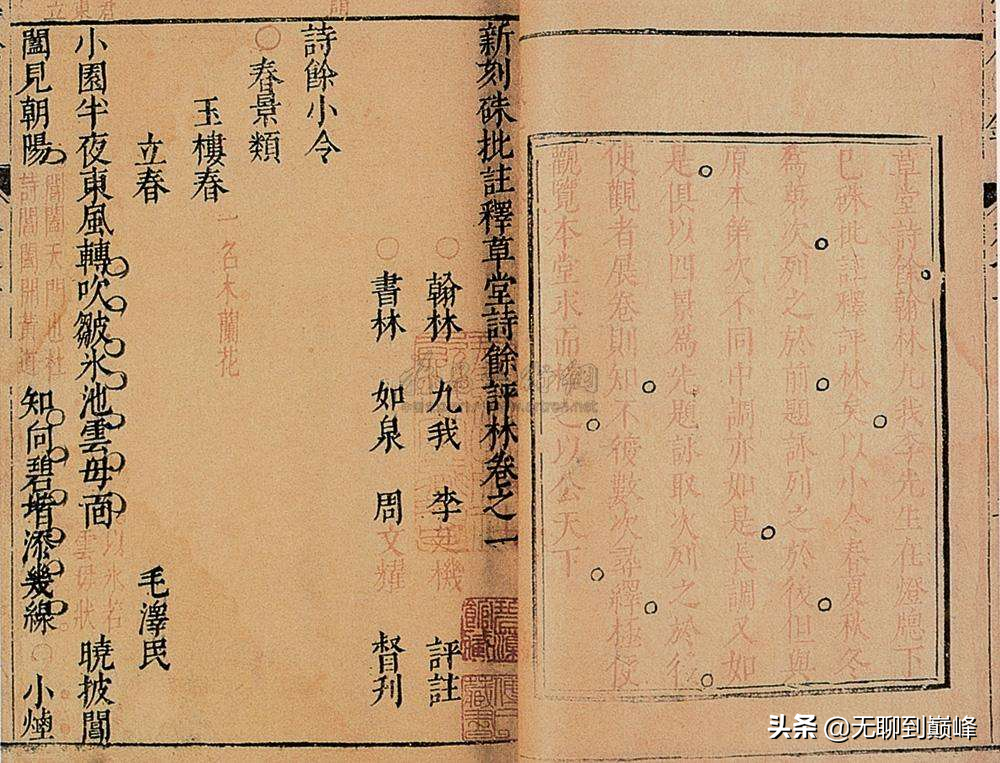 草堂詩餘翰林九我李先生在燈下
已硃批註釋評林矣以小令春夏秋冬
為第入列之於前題詠列之於後但與
原本第次不同中調亦如是長調又如
是俱以四景為先題詠取次列之於後
使觀者展卷則知不複數次尋繹極便
觀覽本堂求而之以公天下
新刻硃批註釋草堂詩餘評林卷之一
○翰林 九我 李廷機 評註
○書林 如泉 周文耀 督刋
詩餘小令
○春景類
玉樓春 一名木蘭花
立春 毛澤民
小園半夜東風轉吹皺氷池雲母面 以氷若雲母狀 曉披閶
闔見朝陽 閶闔天門也杜詩閶闔開黃道 知向碧堦添幾線 ○小煙
头条 @无聊到巅峰